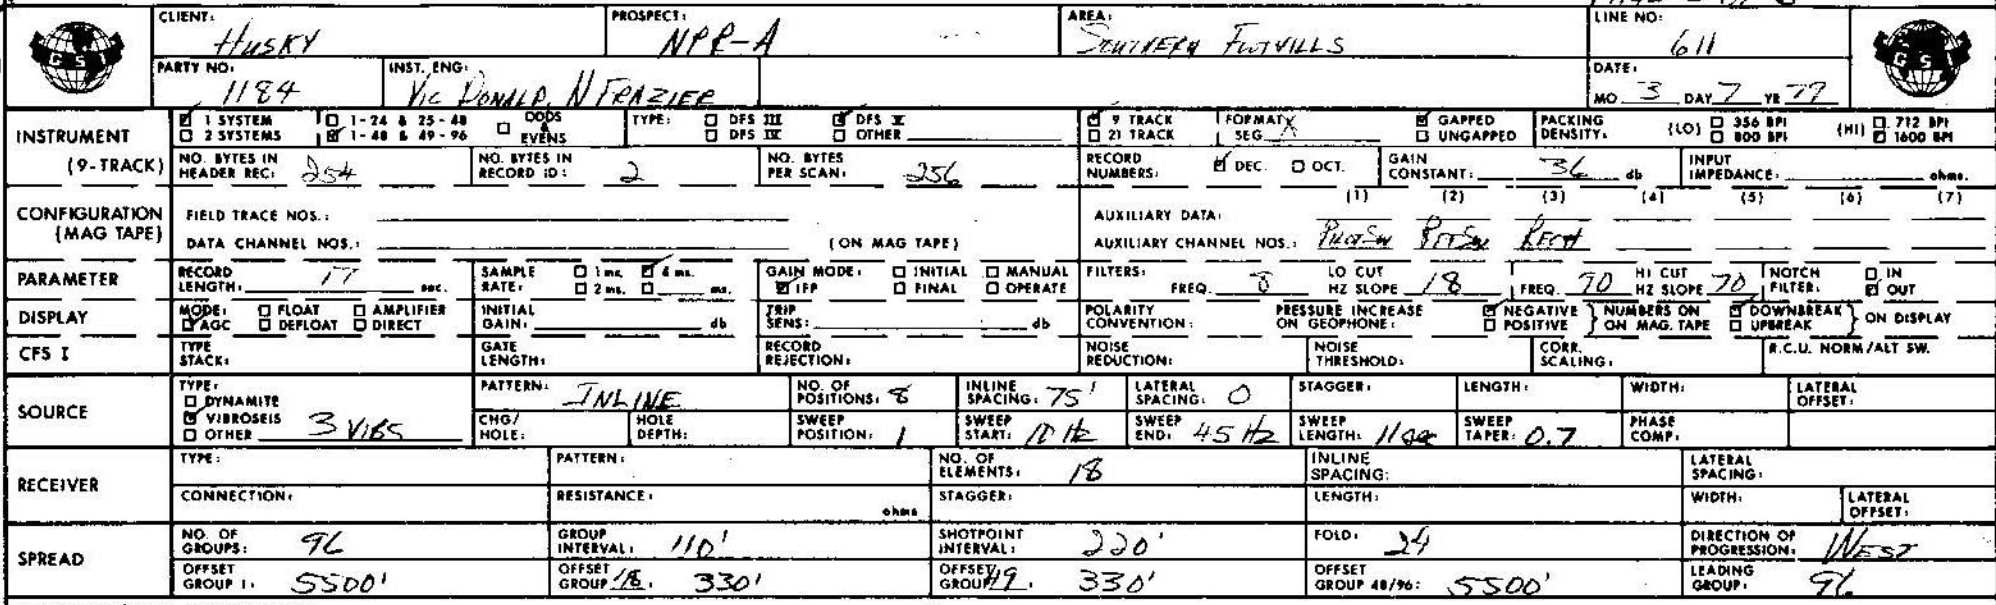 CLIENT: HUSKY PROSPECT: NPR-A AREA: SOUTHERN FOOTHILLS LINE NO: 611
GSI
PARTY NO: 1184 INST. ENG: VIC DONALD, N FRAZIER DATE: MO. 3 DAY 7 YR 79
GSI
INSTRUMENT (9-TRACK)
1 SYSTEM 1-24 & 25-48 ODDS & EVENS TYPE: DFS III DFS V 9 TRACK FORMAT SEG X GAPPED PACKING DENSITY: (LO) 356 BPI (HI) 712 BPI
2 SYSTEMS 1-48 & 49-96 DFS IV OTHER 21 TRACK UNGAPPED 800 BPI 1600 BPI
NO. BYTES IN HEADER REC: 254 NO. BYTES IN RECORD ID: 2 NO. BYTES PER SCAN: 256 RECORD NUMBERS: DEC. OCT. GAIN CONSTANT: 36 db INPUT IMPEDANCE: ohms.
CONFIGURATION (MAG TAPE)
(1) (2) (3) (4) (5) (6) (7)
FIELD TRACE NOS.: AUXILIARY DATA:
DATA CHANNEL NOS.: (ON MAG TAPE) AUXILIARY CHANNEL NOS.:
PARAMETER RECORD LENGTH: 17 sec. SAMPLE RATE: 1 ms. 4 ms. 2 ms. ms. GAIN MODE: INITIAL MANUAL IFP FINAL OPERATE FILTERS: FREQ. 8 LO CUT HZ SLOPE 18 FREQ. 70 HI CUT HZ SLOPE 70 NOTCH FILTER: IN OUT
DISPLAY MODE: FLOAT AMPLIFIER AGC DEFLOAT DIRECT INITIAL GAIN: db TRIP SENS: db POLARITY CONVENTION: PRESSURE INCREASE ON GEOPHONE: NEGATIVE POSITIVE NUMBERS ON ON MAG. TAPE DOWNBREAK UPBREAK ON DISPLAY
CFS I TYPE STACK: GATE LENGTH: RECORD REJECTION: NOISE REDUCTION: NOISE THRESHOLD: CORR. SCALING: R.C.U. NORM/ALT SW.
SOURCE TYPE: DYNAMITE VIBROSEIS OTHER 3 VIBS
PATTERN: INLINE NO. OF POSITIONS: 8 INLINE SPACING: 75' LATERAL SPACING: 0 STAGGER: LENGTH: WIDTH: LATERAL OFFSET:
CHG/ HOLE: HOLE DEPTH: SWEEP POSITION: 1 SWEEP START: 10 Hz SWEEP END: 45 Hz SWEEP LENGTH: 11 sec SWEEP TAPER: 0.7 PHASE COMP:
RECEIVER TYPE: PATTERN: NO. OF ELEMENTS: 18 INLINE SPACING: LATERAL SPACING:
CONNECTION: RESISTANCE: ohms STAGGER: LENGTH: WIDTH: LATERAL OFFSET:
SPREAD NO. OF GROUPS: 96 GROUP INTERVAL: 110' SHOTPOINT INTERVAL: 220' FOLD: 24 DIRECTION OF PROGRESSION: WEST
OFFSET GROUP 1: 5500' OFFSET GROUP 330' OFFSET GROUP 330' OFFSET GROUP 48/96: 5500' LEADING GROUP: 96